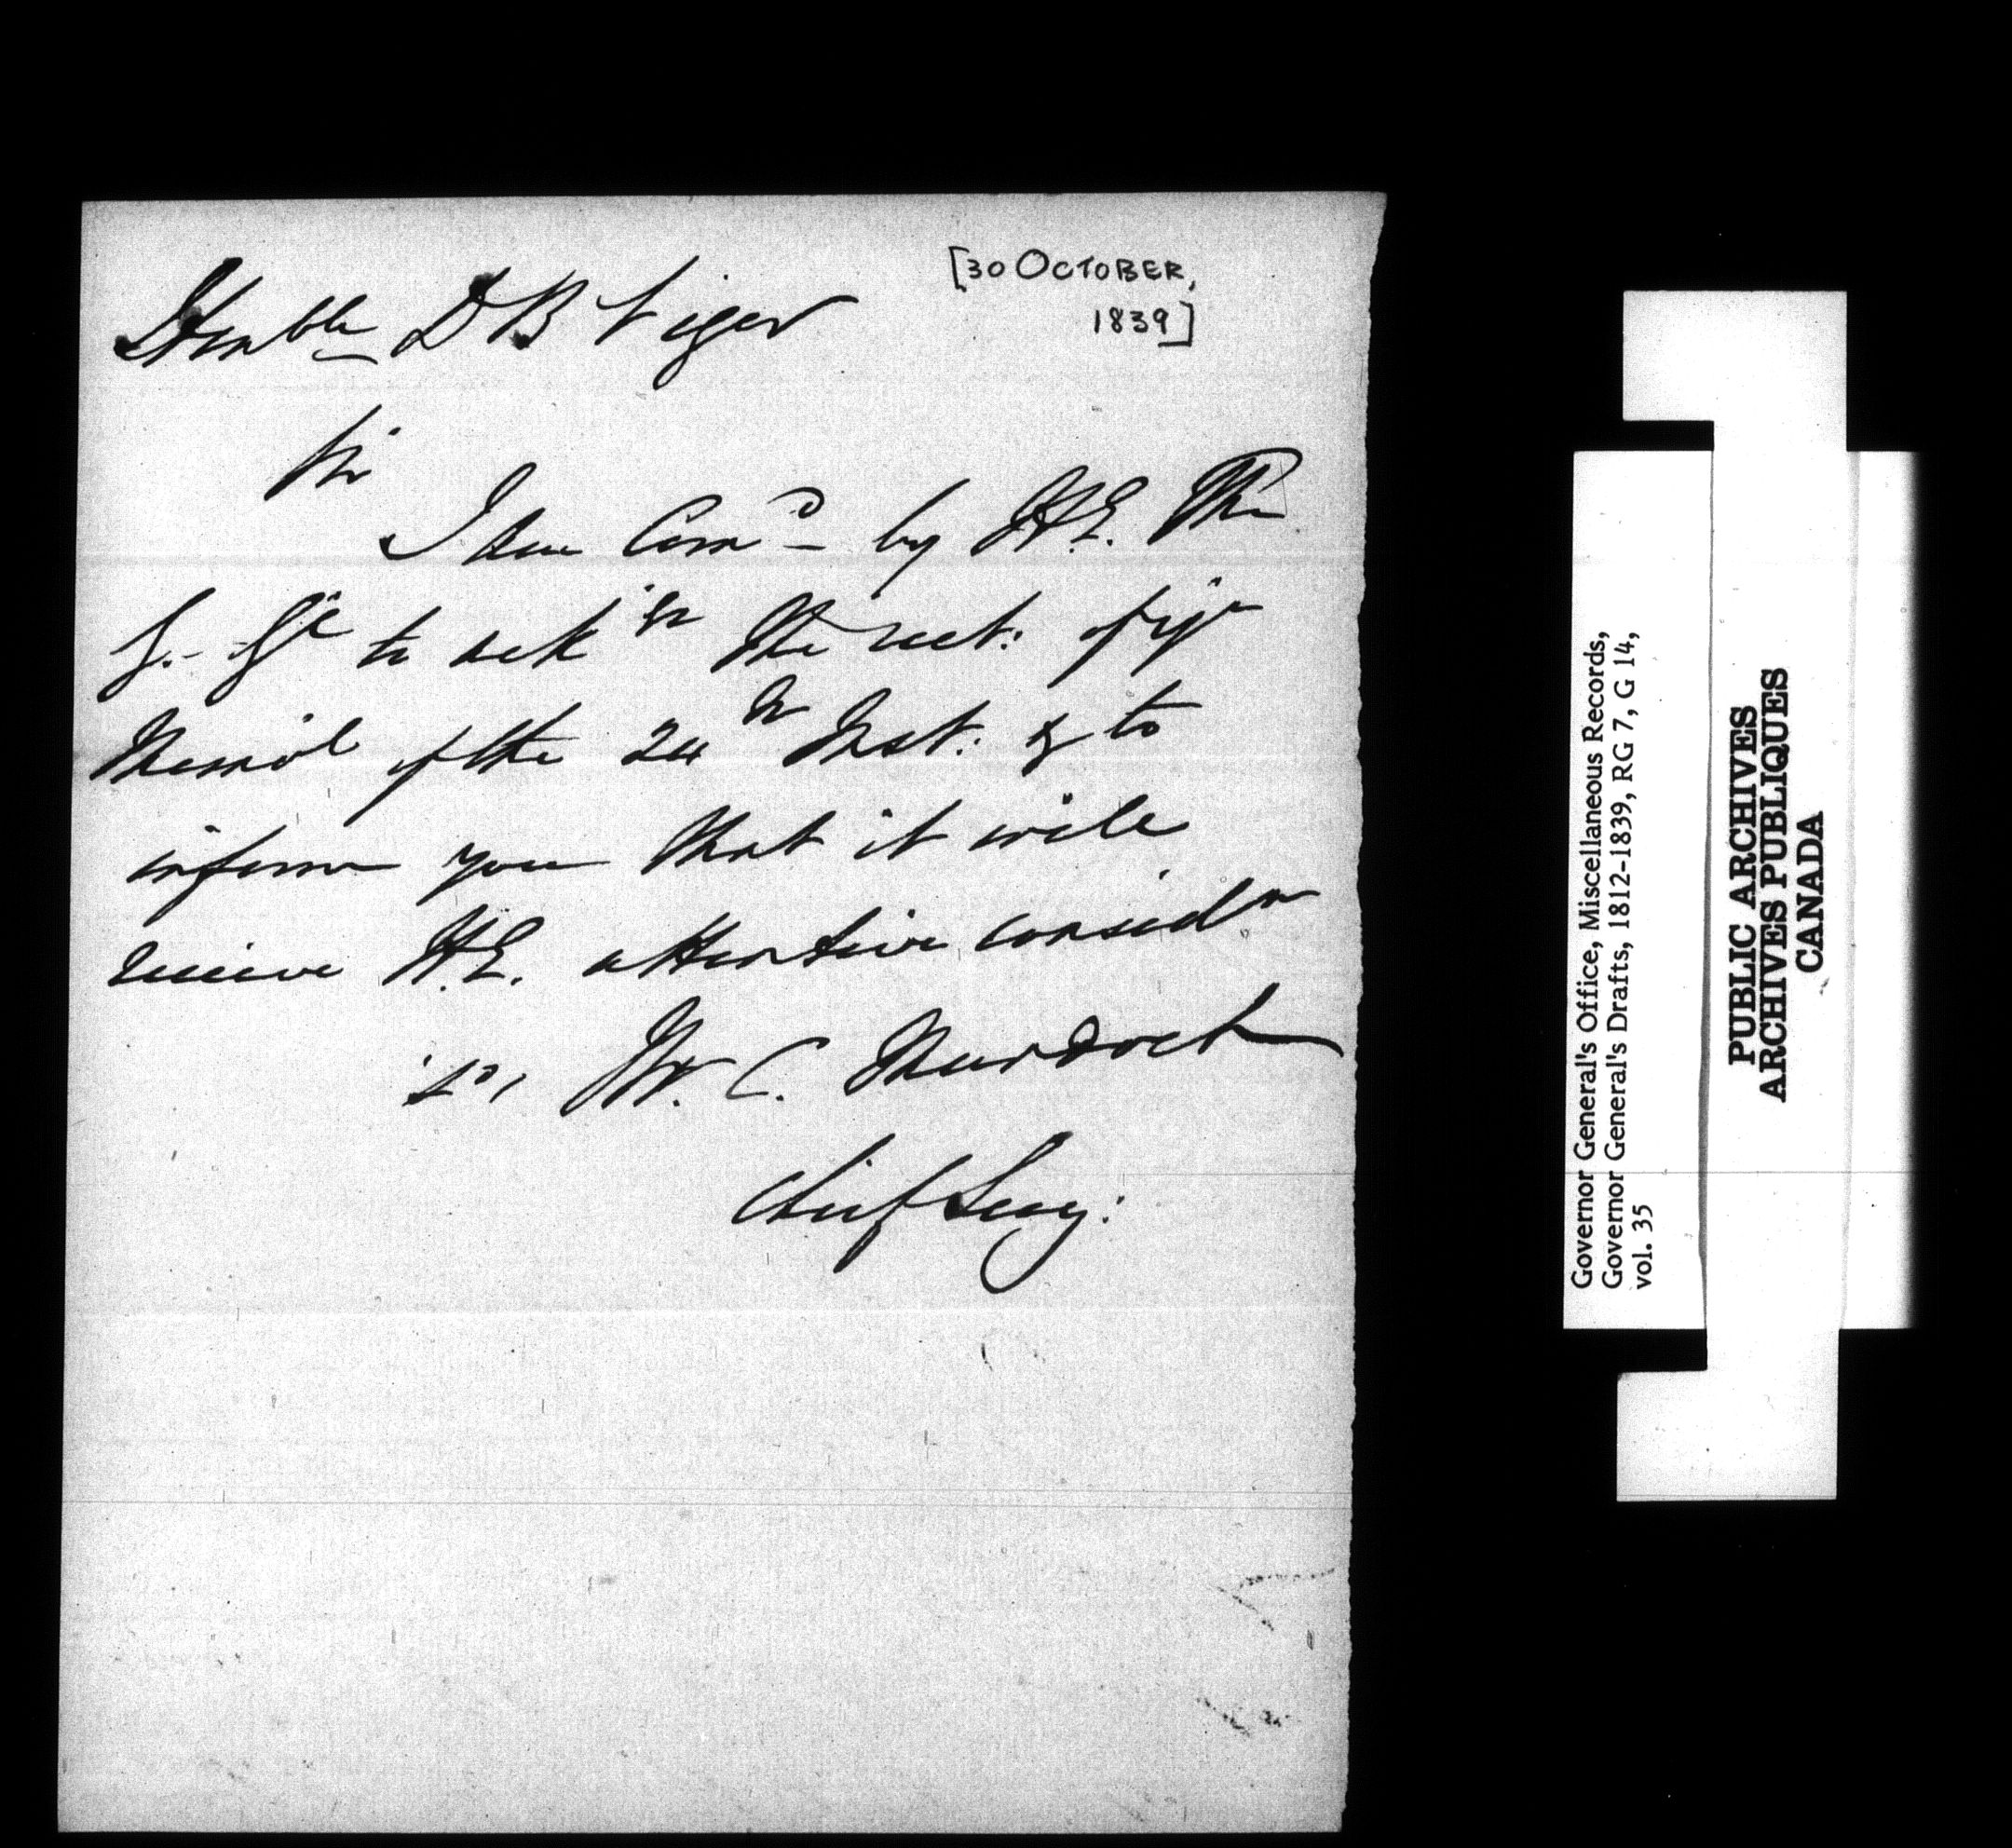 [30 OCTOBER,
1839]
Honble D B Viger
Sir
I am Comd by H.E. The
G. Gl to ackn the rect: of yr
Memol of the 24th Inst: & to
inform you that it will
receive H.E. attentive considn
W. C. Murdoch
Chief Secy:
Governor General's Office, Miscellaneous Records,
Governor General's Drafts, 1812-1839, RG 7, G 14,
vol. 35
PUBLIC ARCHIVES
ARCHIVES PUBLIQUES
CANADA